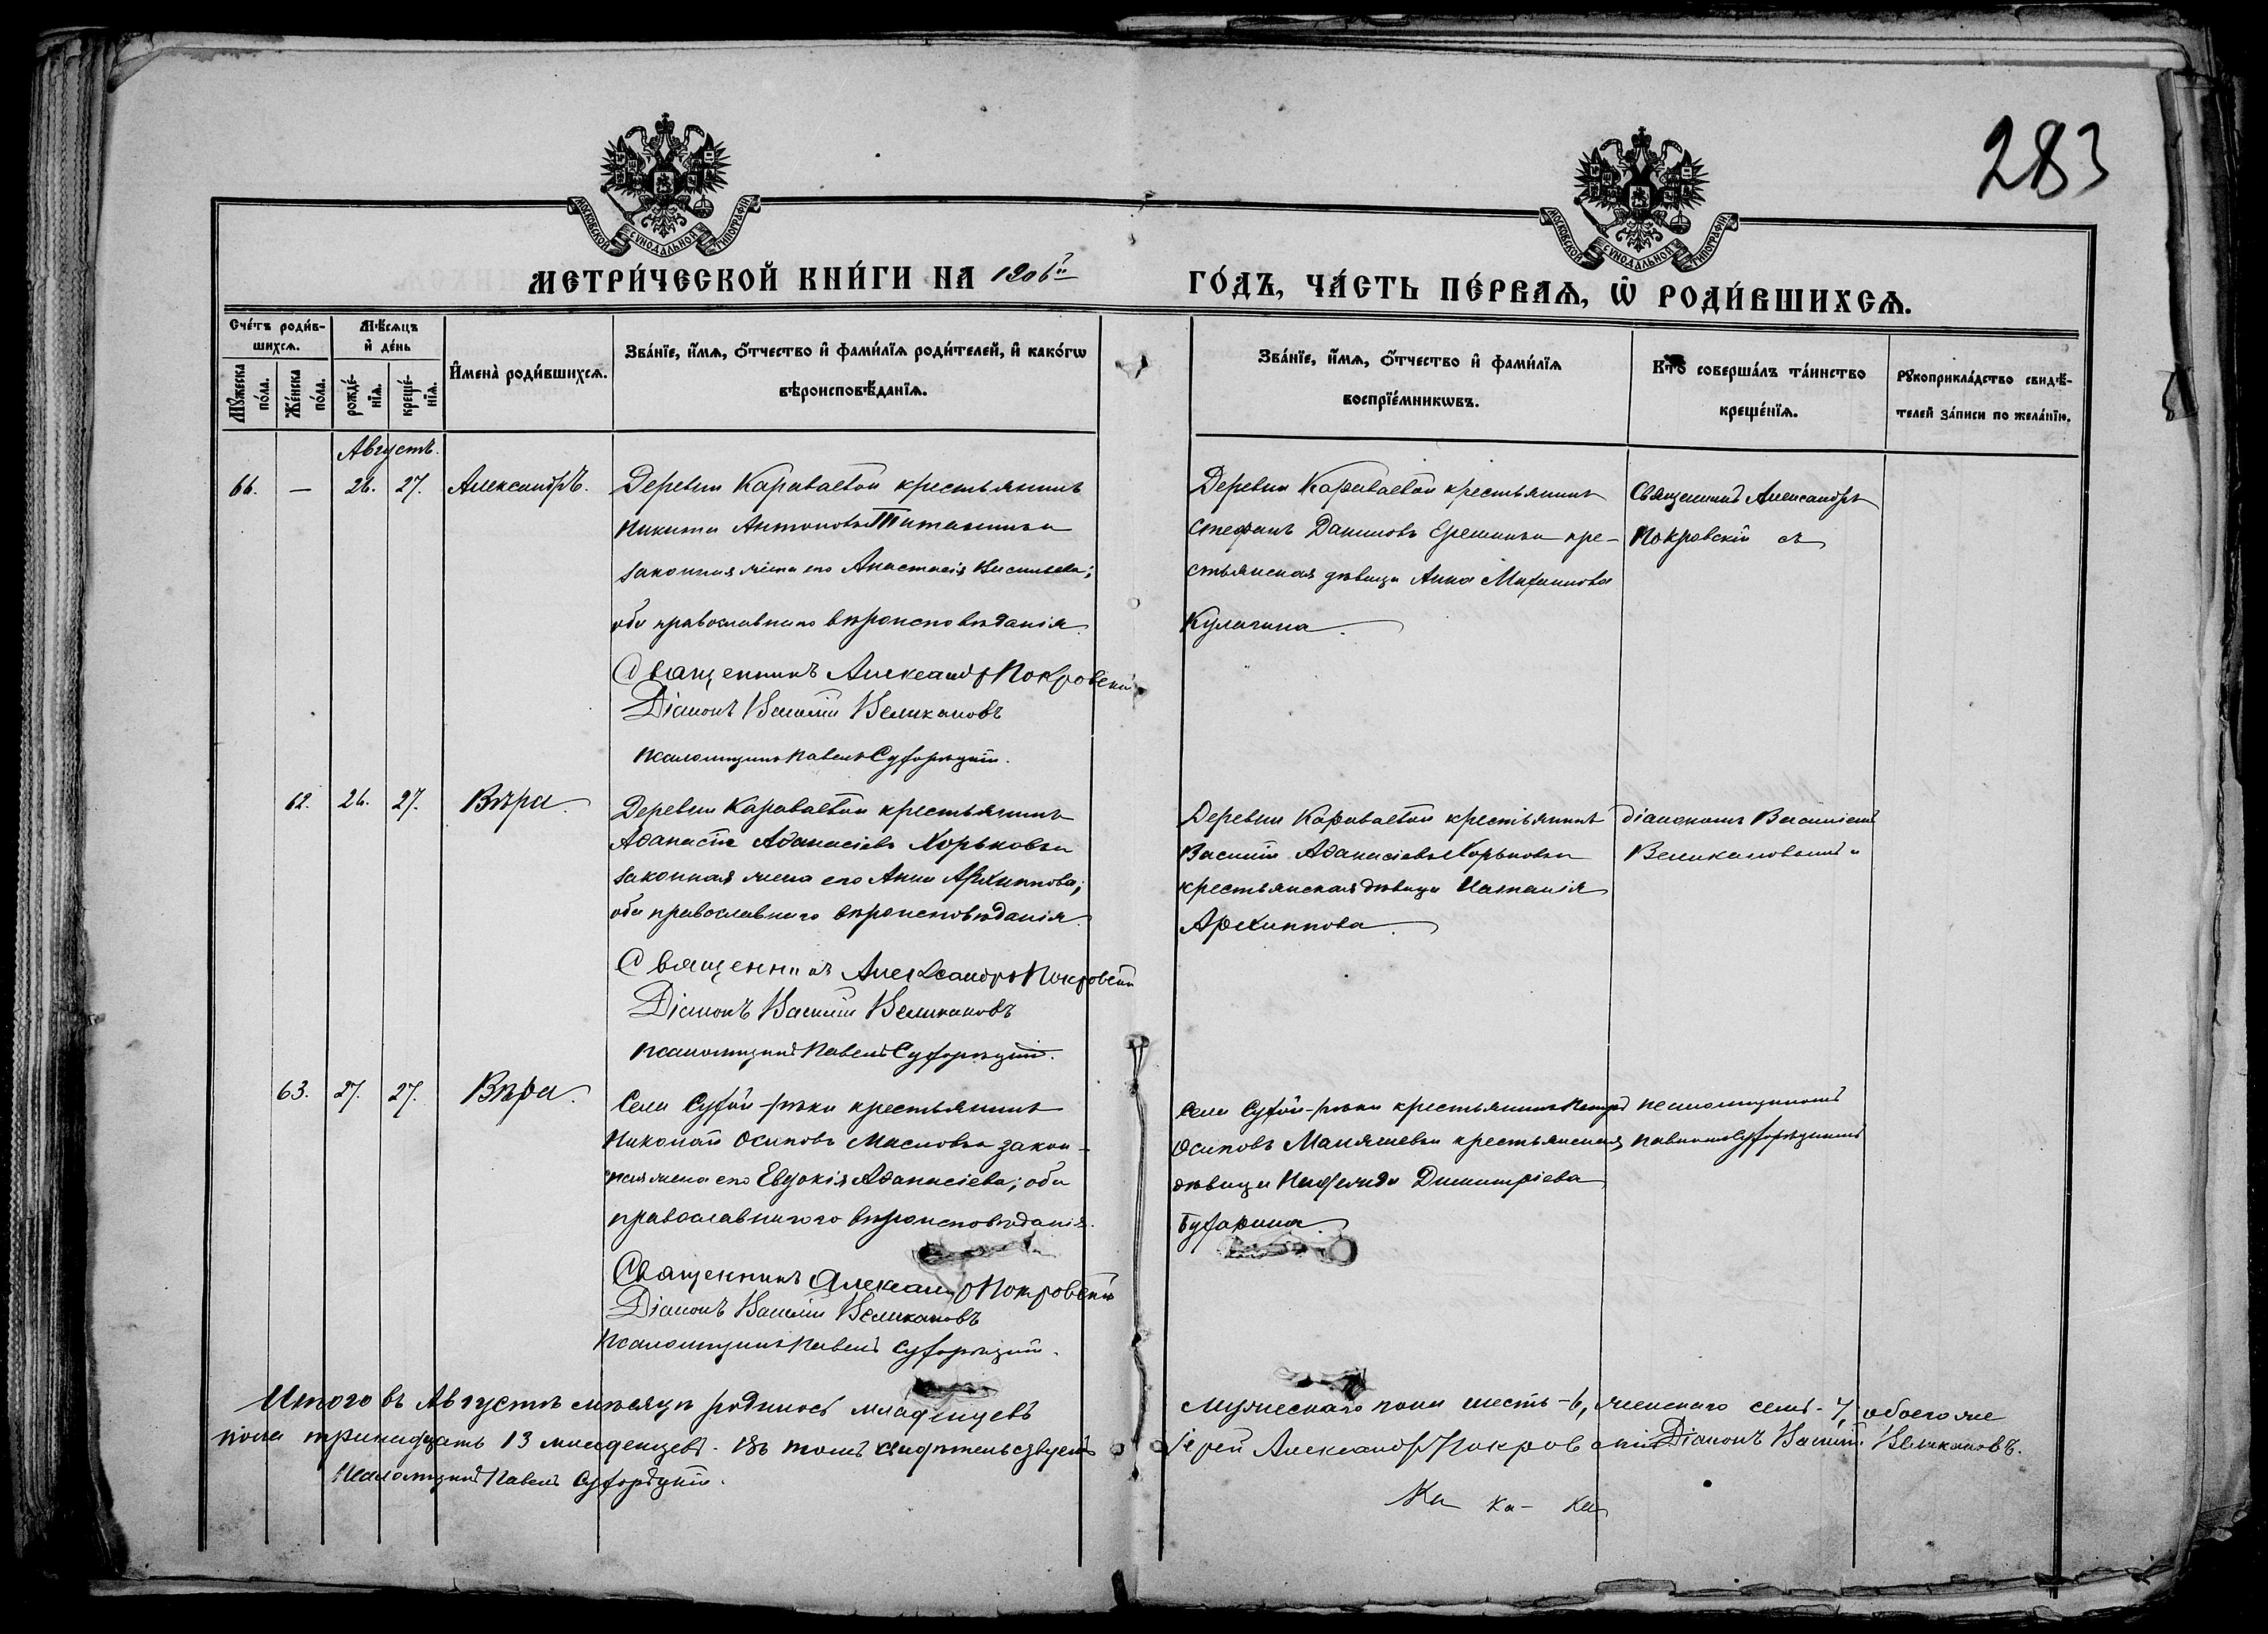 283
МОСКОВСКОЙ СУНОДАЛЬНОЙ ТИПОГРАФІИ
МОСКОВСКОЙ СУНОДАЛЬНОЙ ТИПОГРАФІИ
МЕТРИ́ЧЕСКОЙ КНИ́ГИ НА 1906й
ГО́ДЪ, ЧА́СТЬ ПЕ́РВАѦ, Ѡ҆ РОДИ́ВШИХСѦ.
Сче́тъ роди́в-
шихсѧ.
Мꙋ́жеска по́ла.
Же́нска по́ла.
Мѣ́сѧцъ
и҆ де́нь
рожде́-
нїѧ.
креще́-
нїѧ.
И҆мена̀ роди́вшихсѧ.
Зва́нїе, и҆́мѧ, ѻ҆́тчество и҆ фами́лїѧ роди́телей, и҆ како́гѡ
вѣроисповѣ́данїѧ.
Зва́нїе, и҆́мѧ, ѻ҆́тчество и҆ фами́лїѧ
воспрїе́мникѡвъ.
Кто̀ соверша́лъ та́инство
креще́нїѧ.
Рꙋкоприкла́дство свидѣ́-
телей за́писи по жела́нїю.
Августъ.
66. — 26. 27. Александръ.
Деревни Караваевой крестьянинъ
Никита Антоновъ и
законная жена его Анастасія Васильева;
оба православнаго вѣроисповѣданія.
Священникъ Александръ Покровскій
Діаконъ Василій Великановъ
Псаломщикъ Павелъ Сухорѣцкій.
Деревни Караваевой крестьянинъ
Стефанъ Даниловъ и кре-
стьянская дѣвица Анна Михаилова
Кулагина.
Священникъ Александръ
Покровскій съ
62. 26. 27. Вѣра.
Деревни Караваевой крестьянинъ
Аѳанасій Аѳанасіевъ Хорьковъ и
законная жена его Анна Архиппова;
оба православнаго вѣроисповѣданія.
Священникъ Александръ Покровскій
Діаконъ Василій Великановъ
Псаломщикъ Павелъ Сухорѣцкій.
Деревни Караваевой крестьянинъ
Василій Аѳанасіевъ Хорьковъ и
крестьянская дѣвица Наталія
Архиппова.
діакономъ Василіемъ
Великановымъ и
63. 27. 27. Вѣра.
Села Сухой-рѣки крестьянинъ
Николай Осиповъ Масловъ и закон-
ная жена его Евдокія Аѳанасіева; оба
православнаго вѣроисповѣданія.
Священникъ Александръ Покровскій
Діаконъ Василій Великановъ
Псаломщикъ Павелъ Сухорѣцкій.
Села Сухой-рѣки крестьянинъ Петръ
Осиповъ и крестьянская
дѣвица Димитріева
Бухарина.
псаломщикомъ
Павломъ Сухорѣцкимъ
Итого въ Августѣ мѣсяцѣ родилось младенцевъ
мужескаго пола шесть - 6, женскаго семь - 7, обоего же
пола тринадцать 13 младенцевъ. Въ томъ свидѣтельствуемъ
Іерей Александръ Покровскій Діаконъ Василій Великановъ.
Псаломщикъ Павелъ Сухорѣцкій.